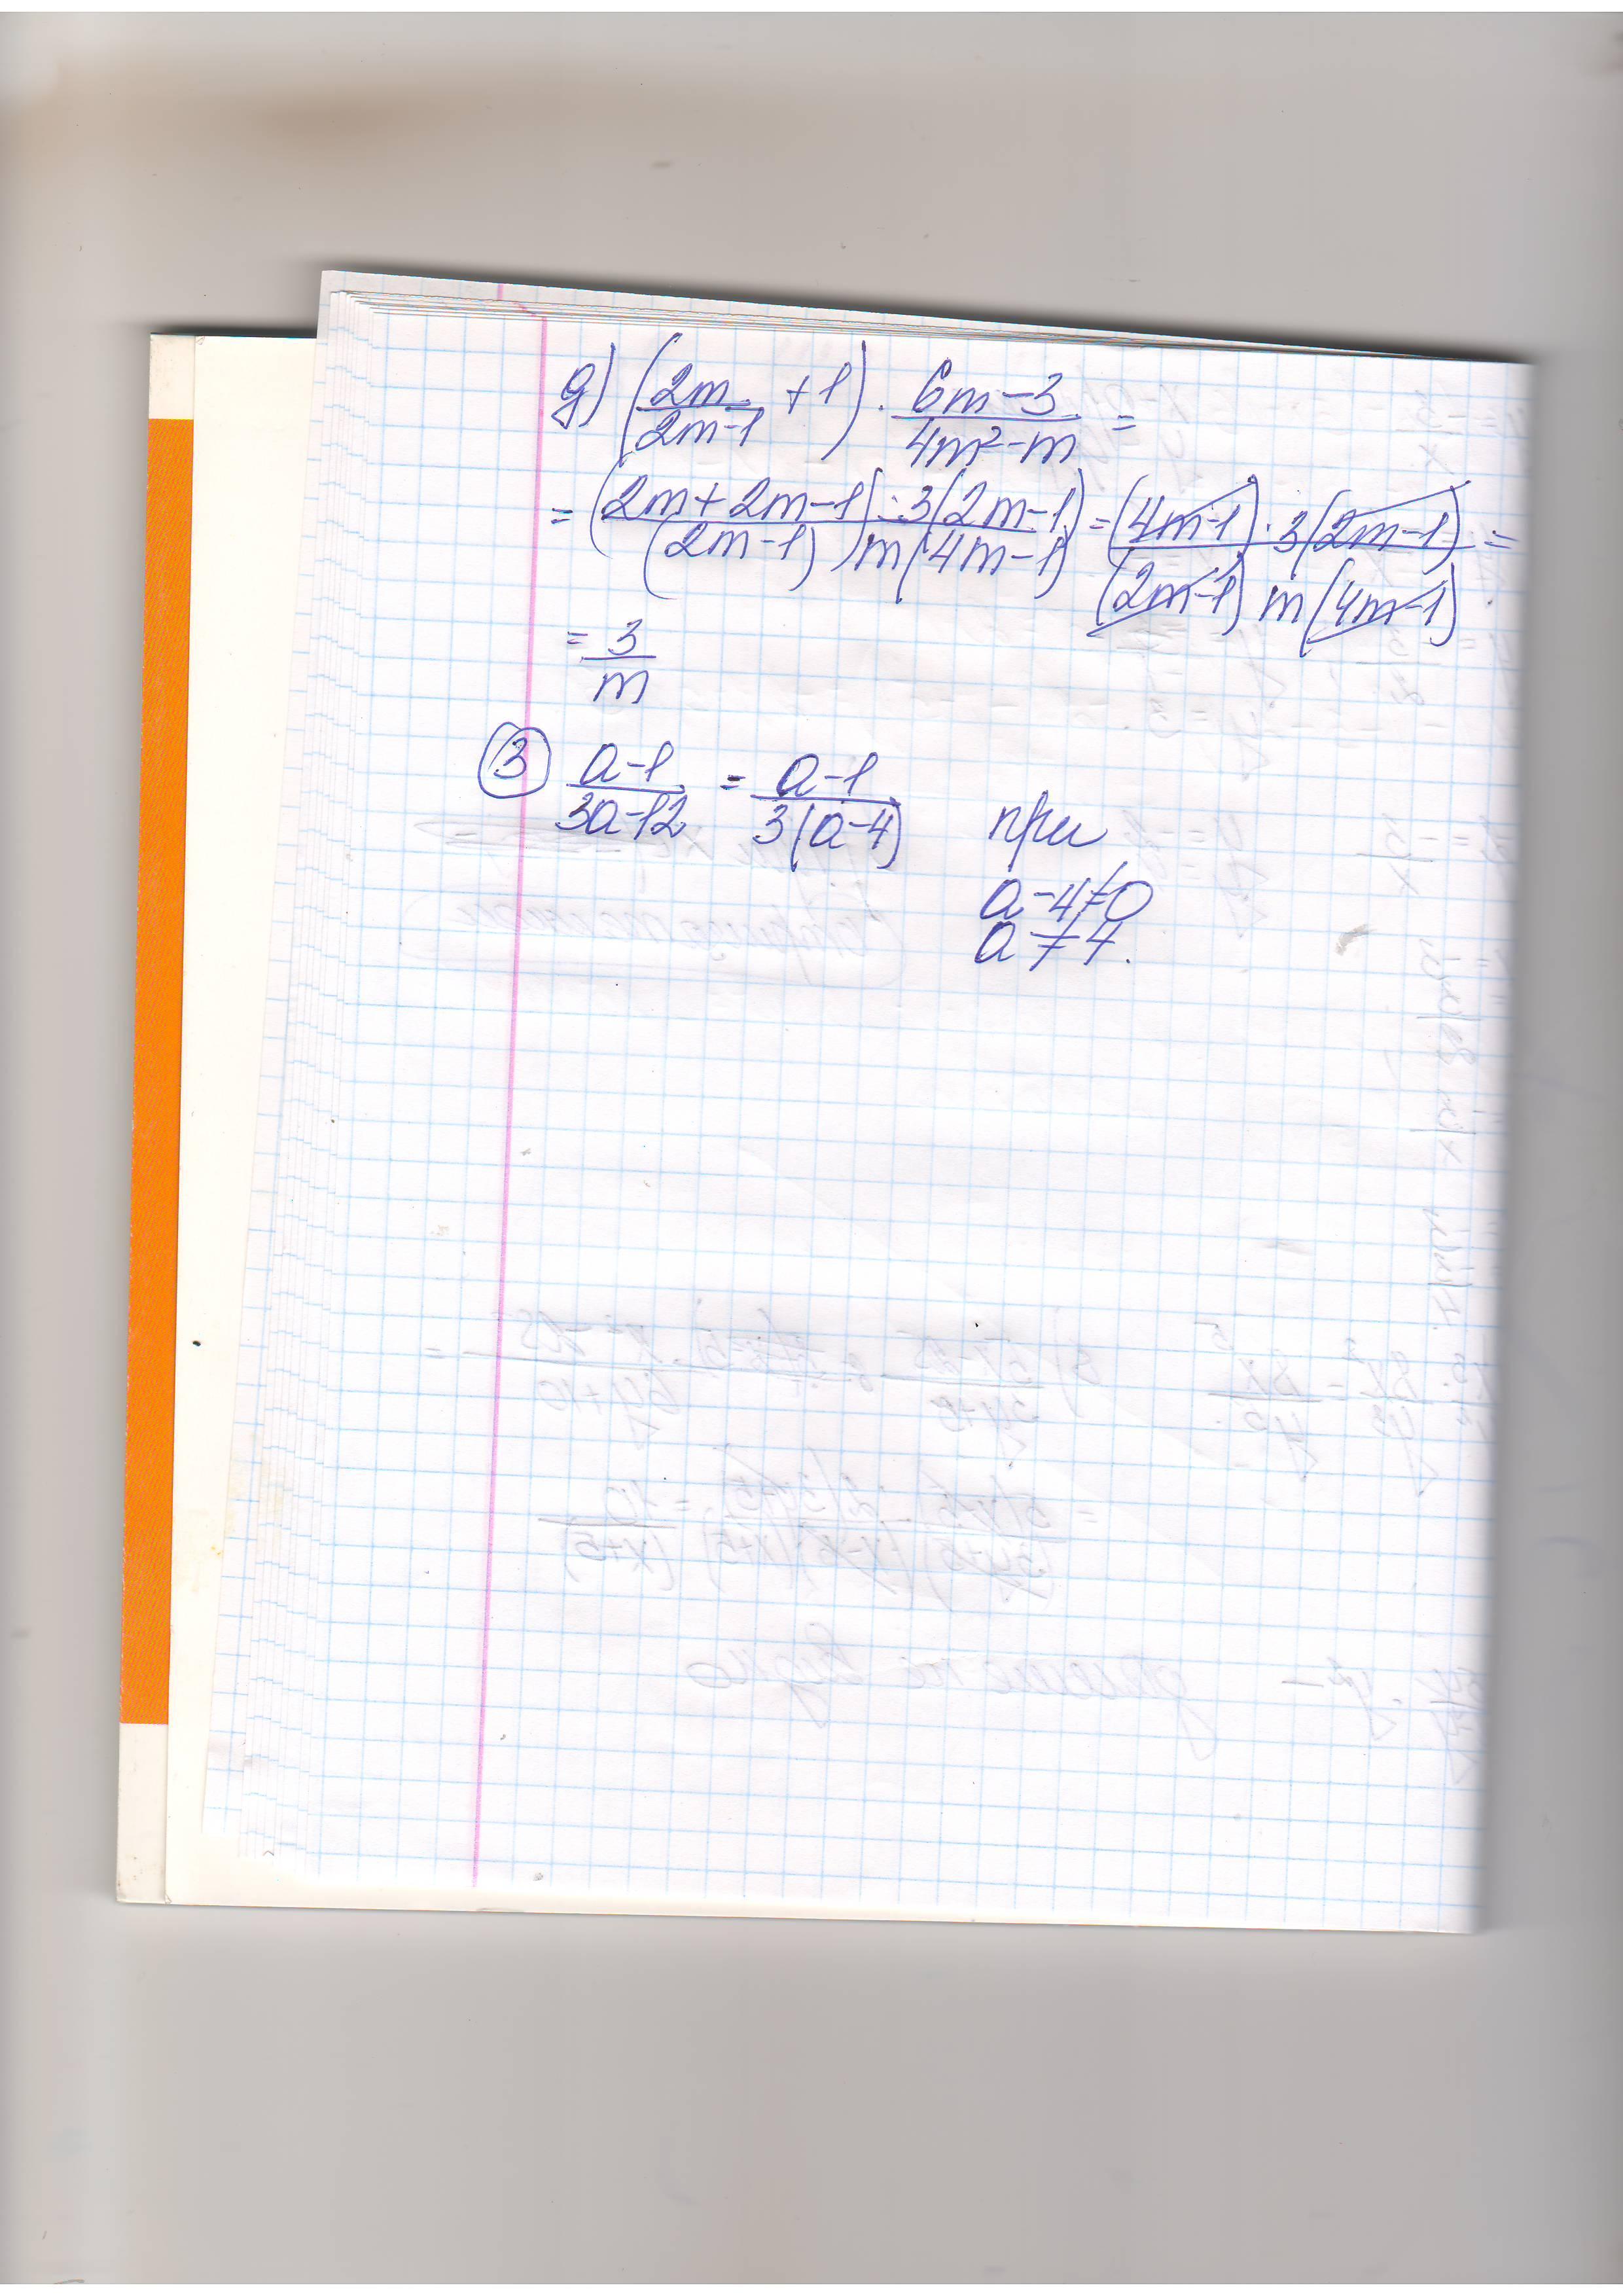 д) (2m/(2m-1) + 1) · (6m-3)/(4m²-m) =
= ((2m+2m-1)/(2m-1)) · 3(2m-1)/(m(4m-1)) = (4m-1)·3(2m-1)/((2m-1) m(4m-1)) =
= 3/m
③ (a-1)/(3a-12) = (a-1)/(3(a-4)) при
a-4≠0
a≠4.